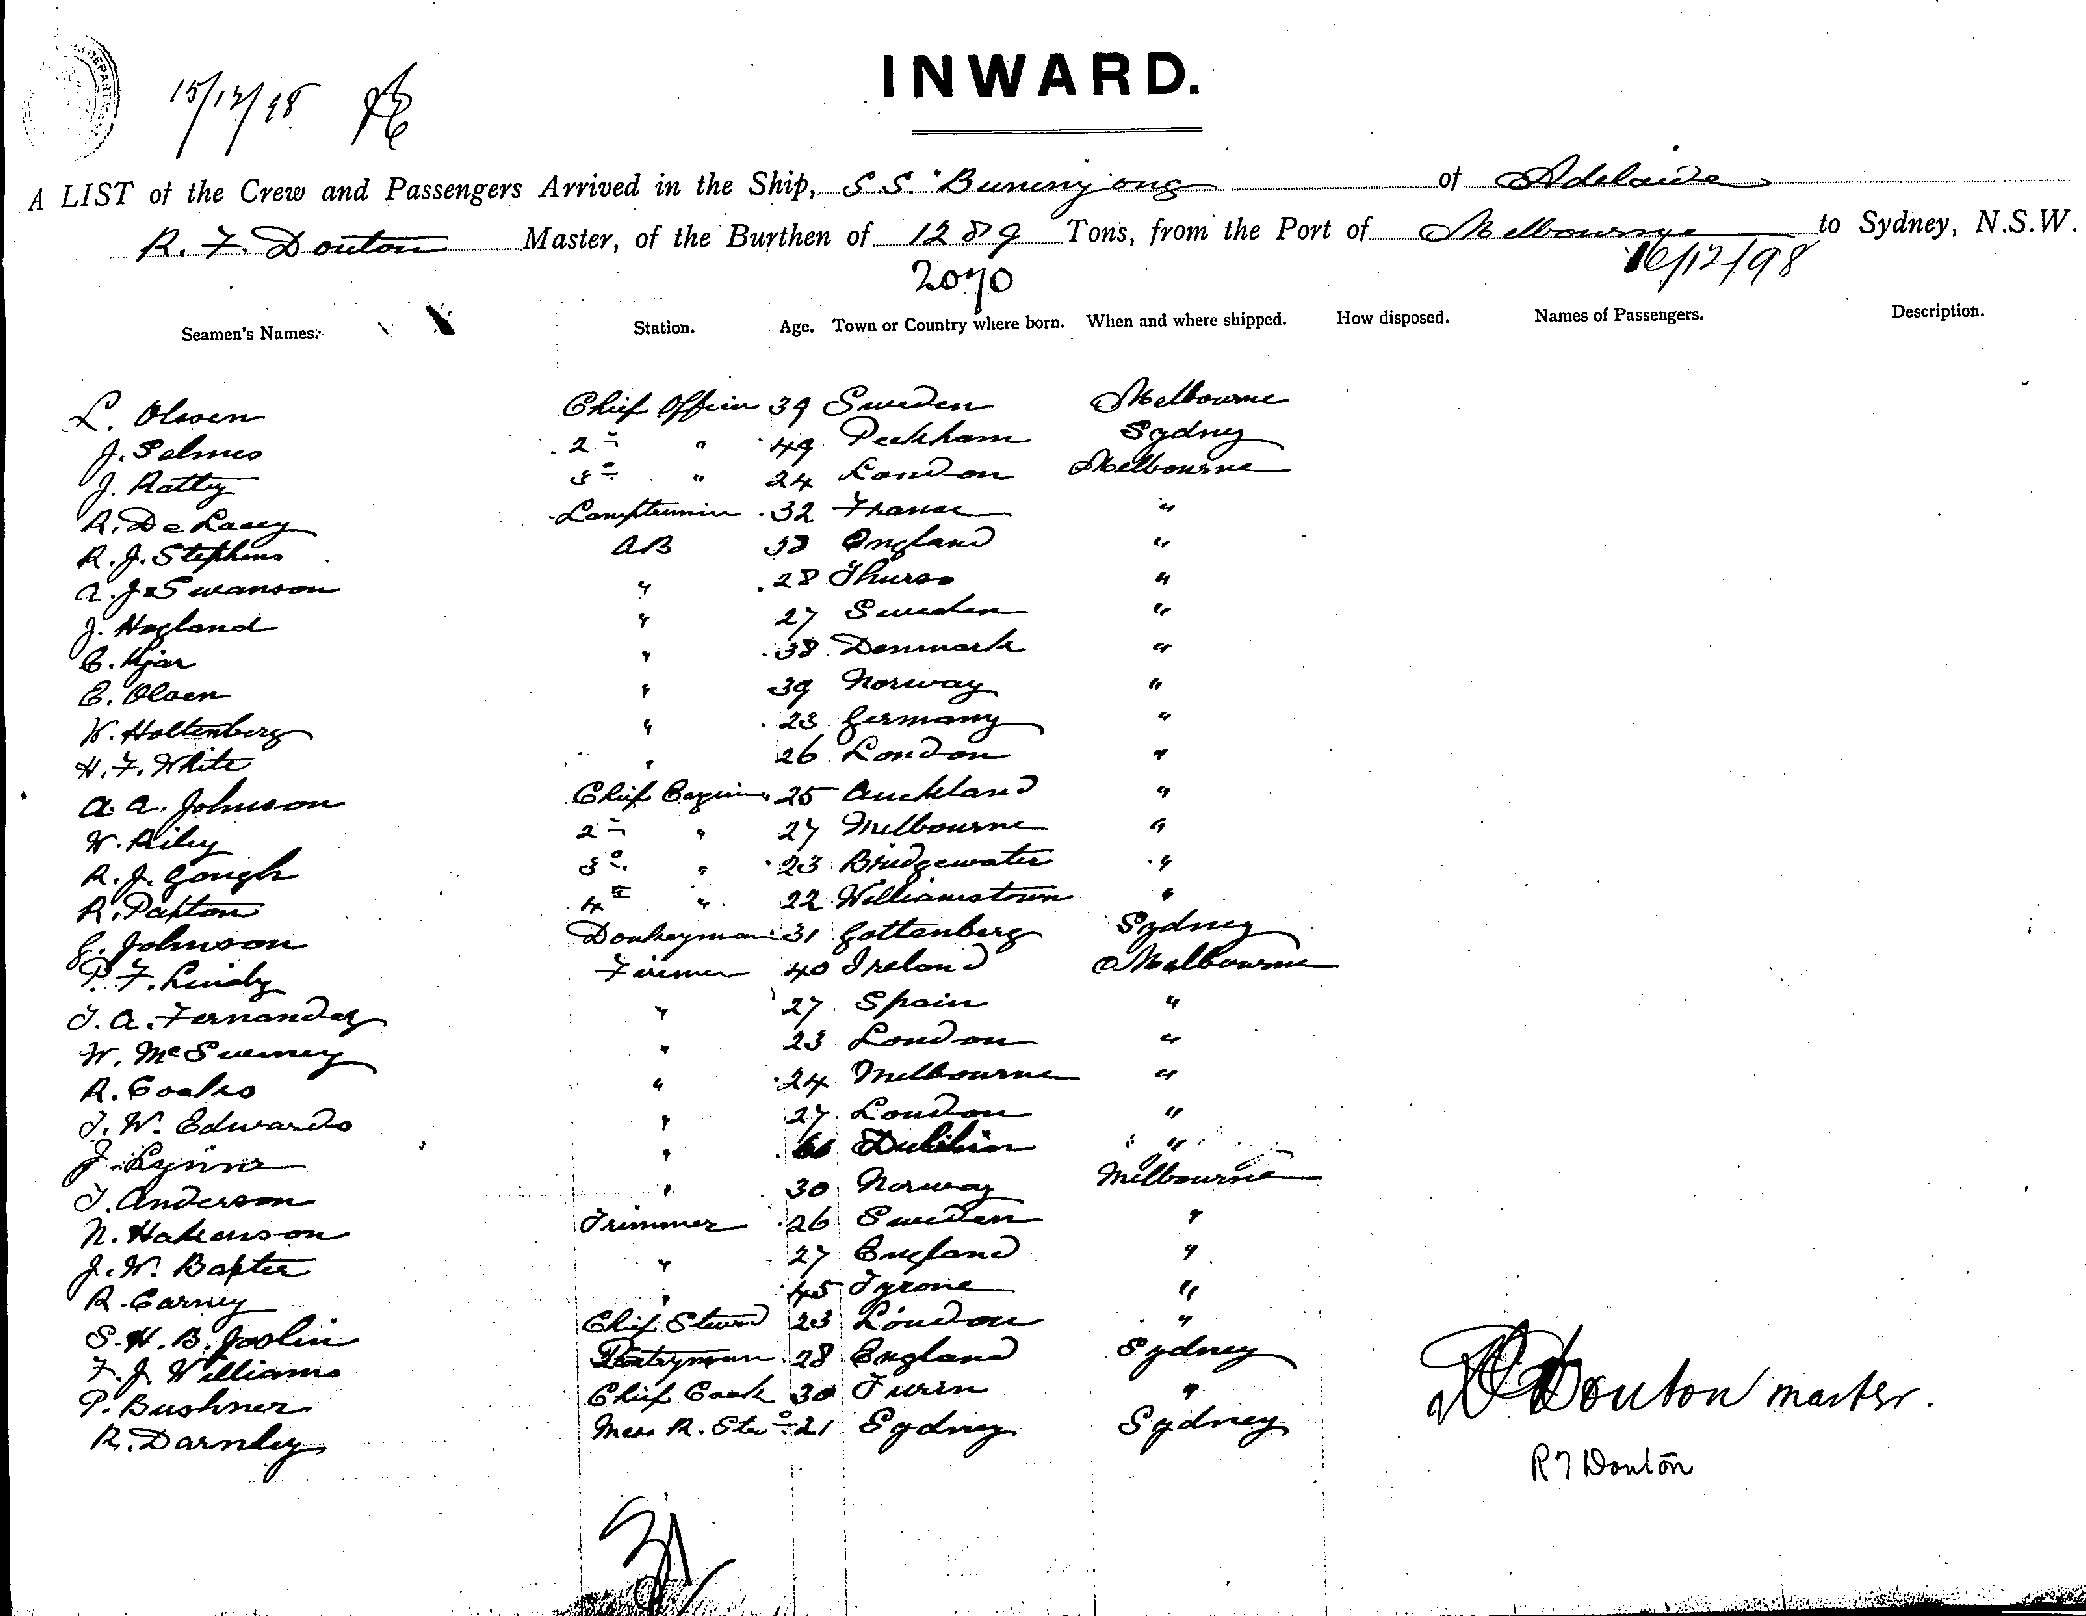 15/12/98
INWARD.
A LIST of the Crew and Passengers Arrived in the Ship, S.S. "Buninyong of Adelaide
R. F. Douton Master, of the Burthen of 1289 Tons, from the Port of Melbourne to Sydney, N.S.W.
2070 16/12/98
Seamen's Names. Station. Age. Town or Country where born. When and where shipped. How disposed. Names of Passengers. Description.
L. Olssen Chief Officer 39 Sweden Melbourne
J. Selmes 2nd " 49 Peckham Sydney
J. Ratty 3rd " 24 London Melbourne
R. De Lacey Lamptrimmer 32 France "
R. J. Stephens AB England "
A. J. Swanson " 28 Thurso "
J. Hogland " 27 Sweden "
C. Kjar " 38 Denmark "
E. Olsen " 39 Norway "
W. Holtenberg " 23 Germany "
H. F. White " 26 London "
A. A. Johnson Chief Engineer 25 Auckland "
W. Riley 2nd " 27 Melbourne "
R. J. Gough 3rd " 23 Bridgewater "
R. Paxton 4th " 22 Williamstown "
G. Johnson Donkeyman 31 Gottenberg Sydney
P. F. Firemen 40 Ireland Melbourne
J. A. Fernandez " 27 Spain "
W. McSweeney " 23 London "
R. Coales " 24 Melbourne "
J. W. Edwards " 27 London "
J. Lynne " Dublin "
J. Anderson " 30 Norway Melbourne
N. Hakenson Trimmer 26 Sweden "
J. W. Baxter " 27 England "
R. Carney " 45 Tyrone "
S. H. B. Joslin Chief Steward 23 London "
F. J. Williams Pantryman 28 England Sydney
P. Bushner Chief Cook 30 Turin "
R. Darnley Mess R. Std 21 Sydney Sydney
Douton master.
R F Douton